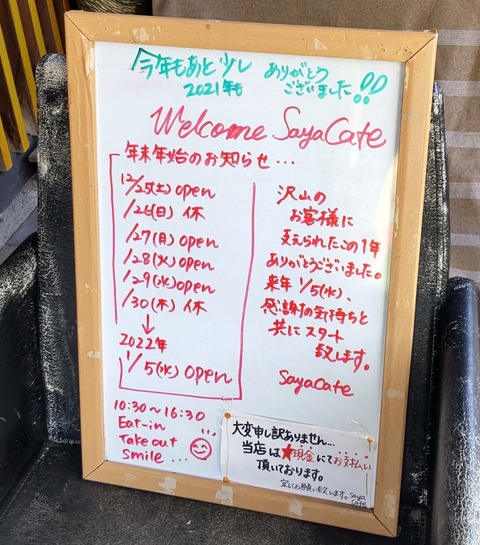 今年もあと少し
2021年も
ありがとう
ございました!!
Welcome SayaCafe
年末年始のお知らせ...
12/25(土) open
/26(日) 休
/27(月) open
/28(火) open
/29(水) open
/30(木) 休
↓
2022年
1/5(水) open
沢山の
お客様に
支えられたこの1年
ありがとうございました。
来年 1/5(水)、
感謝の気持ちと
共にスタート
致します。
SayaCafe
10:30〜16:30
Eat-in
Take out
Smile...
大変申し訳ありません...
当店は★現金にてお支払い
頂いております。
宜しくお願い致します。Saya
Cafe